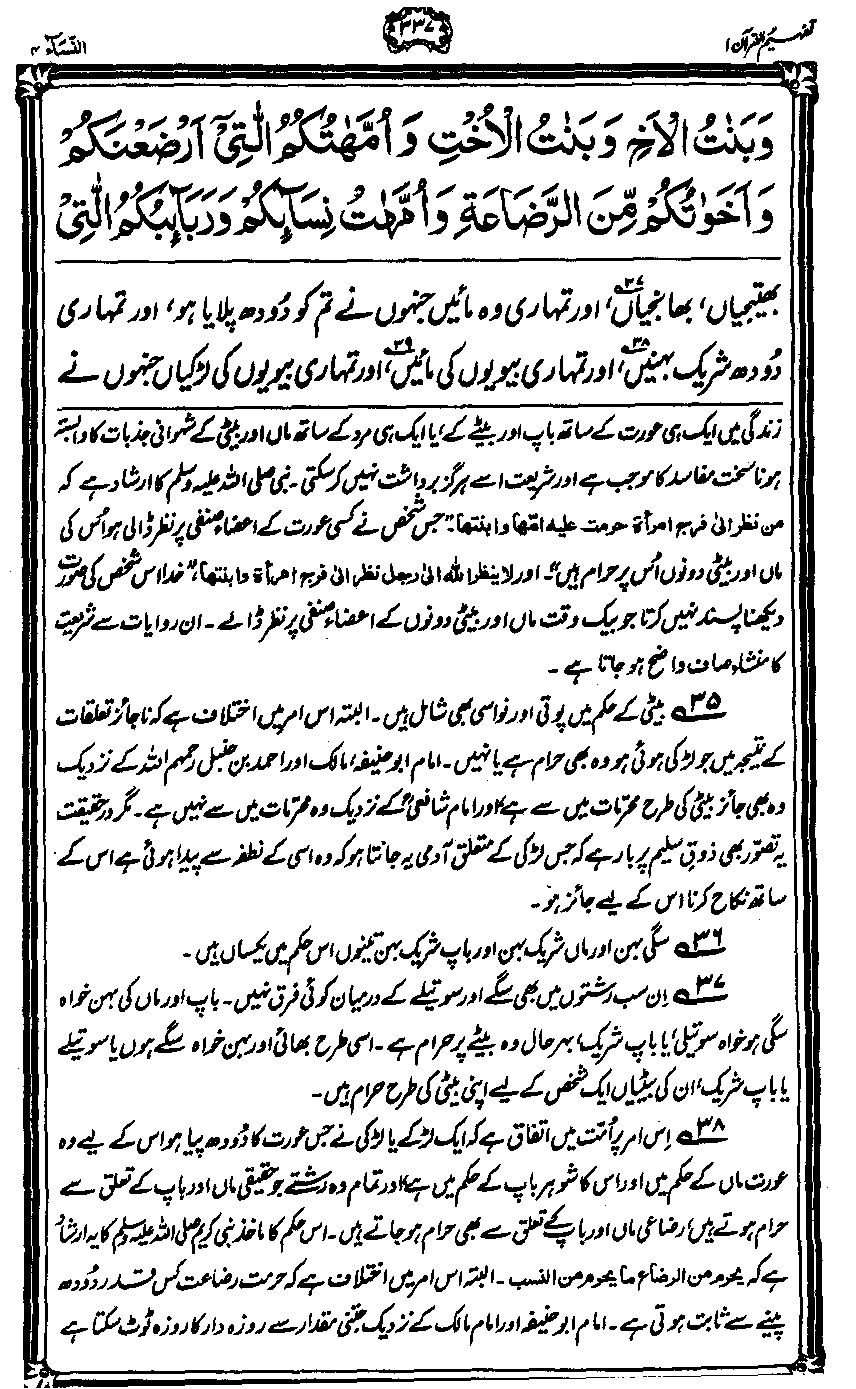 تفہیم القرآن ۱
۳۳۷
النسآء ۴
وَبَنٰتُ الْاَخِ وَبَنٰتُ الْاُخْتِ وَاُمَّهٰتُكُمُ الّٰتِيْۤ اَرْضَعْنَكُمْ
وَاَخَوٰتُكُمْ مِّنَ الرَّضَاعَةِ وَاُمَّهٰتُ نِسَآئِكُمْ وَرَبَآئِبُكُمُ الّٰتِيْ
بھتیجیاں، بھانجیاں،۳۷ اور تمہاری وہ مائیں جنہوں نے تم کو دُودھ پلایا ہو، اور تمہاری
دُودھ شریک بہنیں،۳۸ اور تمہاری بیویوں کی مائیں،۳۹ اور تمہاری بیویوں کی لڑکیاں جنہوں نے
زندگی میں ایک ہی عورت کے ساتھ باپ اور بیٹے کے، یا ایک ہی مرد کے ساتھ ماں اور بیٹی کے شہوانی جذبات کا وابستہ
ہونا سخت مفاسد کا موجب ہے اور شریعت اسے ہرگز برداشت نہیں کرسکتی۔ نبی صلی اللہ علیہ وسلم کا ارشاد ہے کہ
من نظر الیٰ فرج امرأۃ حرمت علیہ امّھا وابنتھا۔ ”جس شخص نے کسی عورت کے اعضاء صنفی پر نظر ڈالی ہو اُس کی
ماں اور بیٹی دونوں اُس پر حرام ہیں“۔ اور لا ینظر اللہ الیٰ رجل نظر الیٰ فرج امرأۃ وابنتھا، ”خدا اس شخص کی صورت
دیکھنا پسند نہیں کرتا جو بیک وقت ماں اور بیٹی دونوں کے اعضاء صنفی پر نظر ڈالے۔ ان روایات سے شریعت
کا منشاء صاف واضح ہو جاتا ہے۔
۳۵؎ بیٹی کے حکم میں پوتی اور نواسی بھی شامل ہیں۔ البتہ اس امر میں اختلاف ہے کہ ناجائز تعلقات
کے نتیجہ میں جو لڑکی ہوئی ہو وہ بھی حرام ہے یا نہیں۔ امام ابو حنیفہ، مالک اور احمد بن حنبل رحمہم اللہ کے نزدیک
وہ بھی جائز بیٹی کی طرح محرّمات میں سے ہے، اور امام شافعیؒ کے نزدیک وہ محرمات میں سے نہیں ہے۔ مگر درحقیقت
یہ تصوّر بھی ذوقِ سلیم پر بار ہے کہ جس لڑکی کے متعلق آدمی یہ جانتا ہو کہ وہ اسی کے نطفہ سے پیدا ہوئی ہے اس کے
ساتھ نکاح کرنا اس کے لیے جائز ہو۔
۳۶؎ سگی بہن اور ماں شریک بہن اور باپ شریک بہن تینوں اس حکم میں یکساں ہیں۔
۳۷؎ اِن سب رشتوں میں بھی سگے اور سوتیلے کے درمیان کوئی فرق نہیں۔ باپ اور ماں کی بہن خواہ
سگی ہو خواہ سوتیلی، یا باپ شریک، بہر حال وہ بیٹے پر حرام ہے۔ اسی طرح بھائی اور بہن خواہ سگے ہوں یا سوتیلے
یا باپ شریک، ان کی بیٹیاں ایک شخص کے لیے اپنی بیٹی کی طرح حرام ہیں۔
۳۸؎ اِس امر پر اُمّت میں اتفاق ہے کہ ایک لڑکے یا لڑکی نے جس عورت کا دُودھ پیا ہو اس کے لیے وہ
عورت ماں کے حکم میں اور اس کا شوہر باپ کے حکم میں ہے، اور تمام وہ رشتے جو حقیقی ماں اور باپ کے تعلق سے
حرام ہوتے ہیں، رضاعی ماں اور باپ کے تعلق سے بھی حرام ہو جاتے ہیں۔ اس حکم کا ماخذ نبی کریم صلی اللہ علیہ وسلم کا یہ ارشاد
ہے کہ یحرم من الرضاع ما یحرم من النسب۔ البتہ اس امر میں اختلاف ہے کہ حرمت رضاعت کس قدر دُودھ
پینے سے ثابت ہوتی ہے۔ امام ابو حنیفہ اور امام مالک کے نزدیک جتنی مقدار سے روزہ دار کا روزہ ٹوٹ سکتا ہے